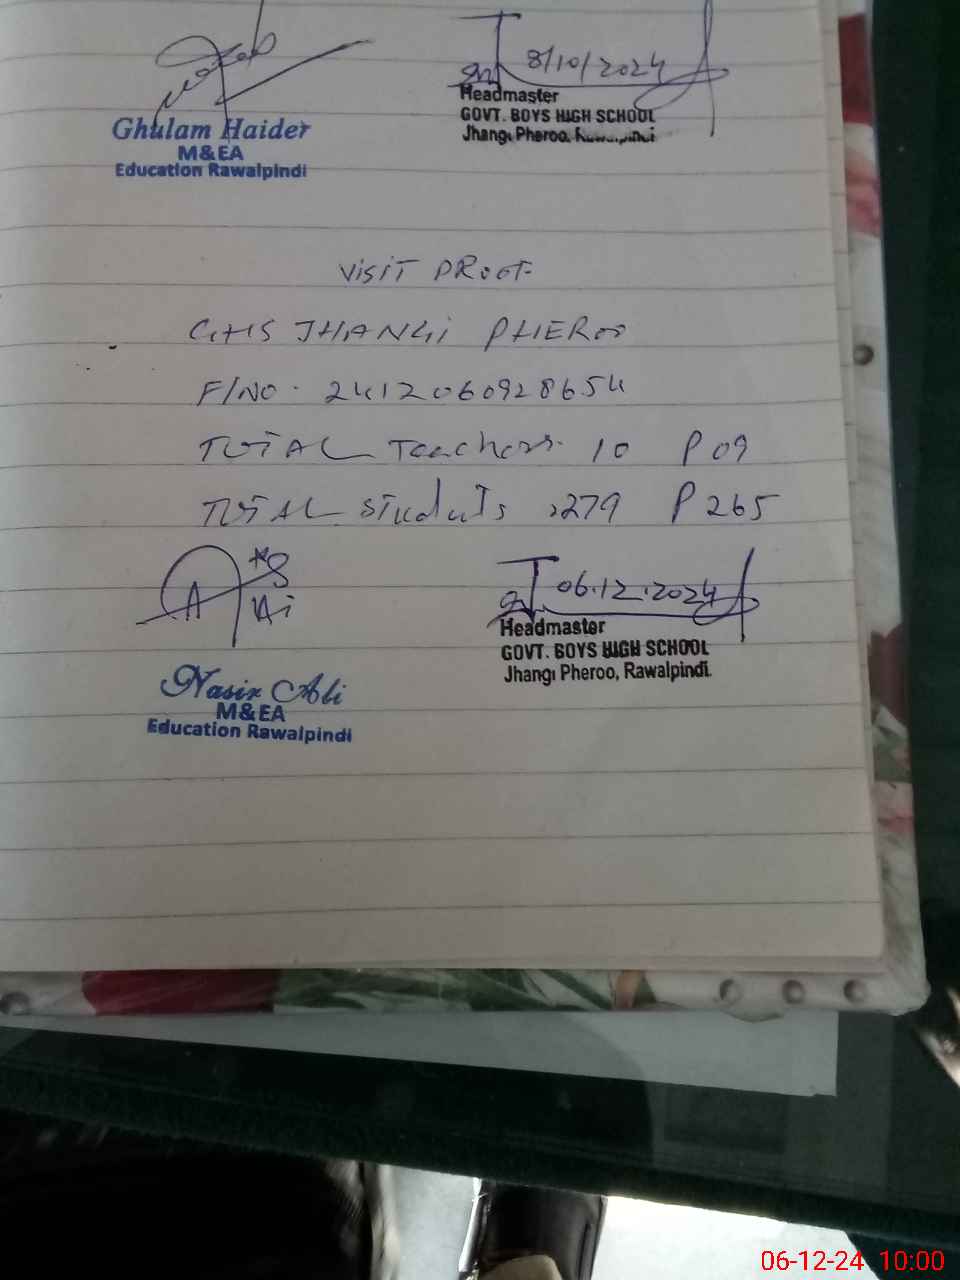 8/10/2024
Ghulam Haider
M&EA
Education Rawalpindi
Headmaster
GOVT. BOYS HIGH SCHOOL
Jhangi Pheroo, Rawalpindi
VISIT PROOF
GHS JHANGI PHEROO
F/NO. 2412060928654
TOTAL Teachers. 10 P 09
TOTAL Students :279 P 265
06.12.2024
Nasir Ali
M&EA
Education Rawalpindi
Headmaster
GOVT. BOYS HIGH SCHOOL
Jhangi Pheroo, Rawalpindi.
06-12-24 10:00